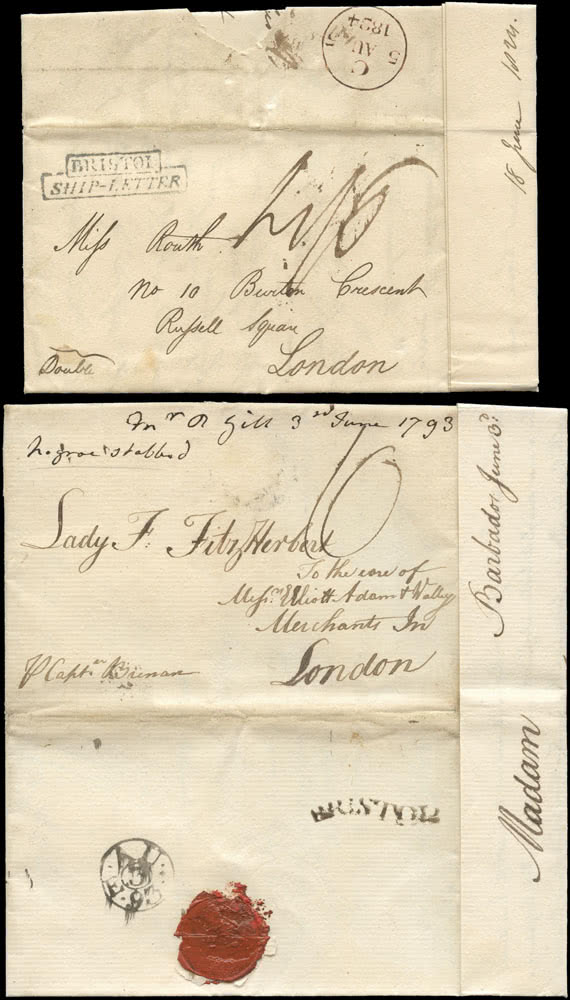 C
5
AU
1824
18 June 1824.
BRISTOL
SHIP-LETTER
Miſs Routh
No 10 Burton Crescent
Ruſsell Square
London
Double
Mr R Gill 3rd June 1793
negroe stabbed
6
Lady F. FitzHerbert
To the care of
Meſsrs Elliott Adam & Walley
Merchants In
London
P Captn Brenan
BRISTOL
Barbados June 3d
Madam
93